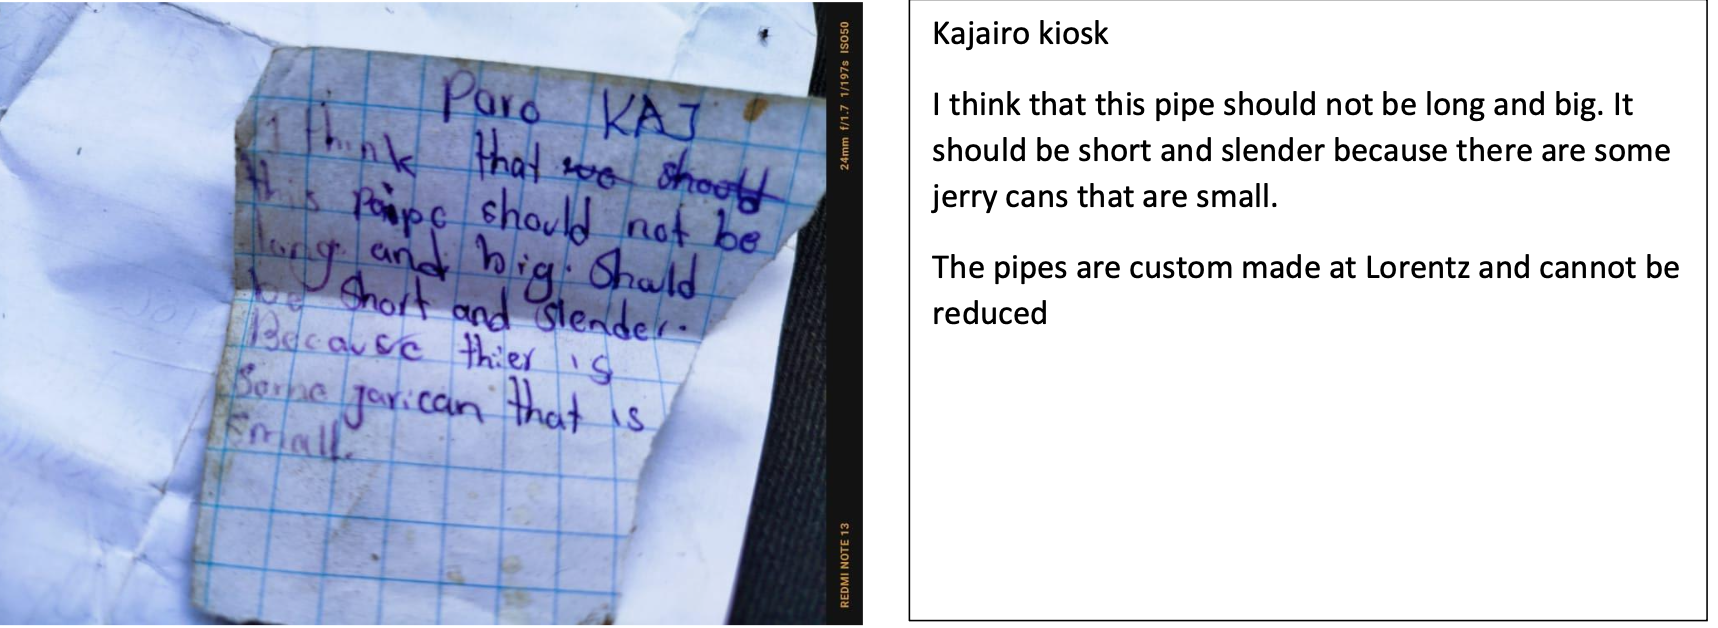 Paro KAJ
I think that we should
this paipe should not be
long and big. Should
be short and slender.
Because thier is
Some jarican that is
small.
24mm f/1.7 1/197s ISO50
REDMI NOTE 13
Kajairo kiosk
I think that this pipe should not be long and big. It
should be short and slender because there are some
jerry cans that are small.
The pipes are custom made at Lorentz and cannot be
reduced